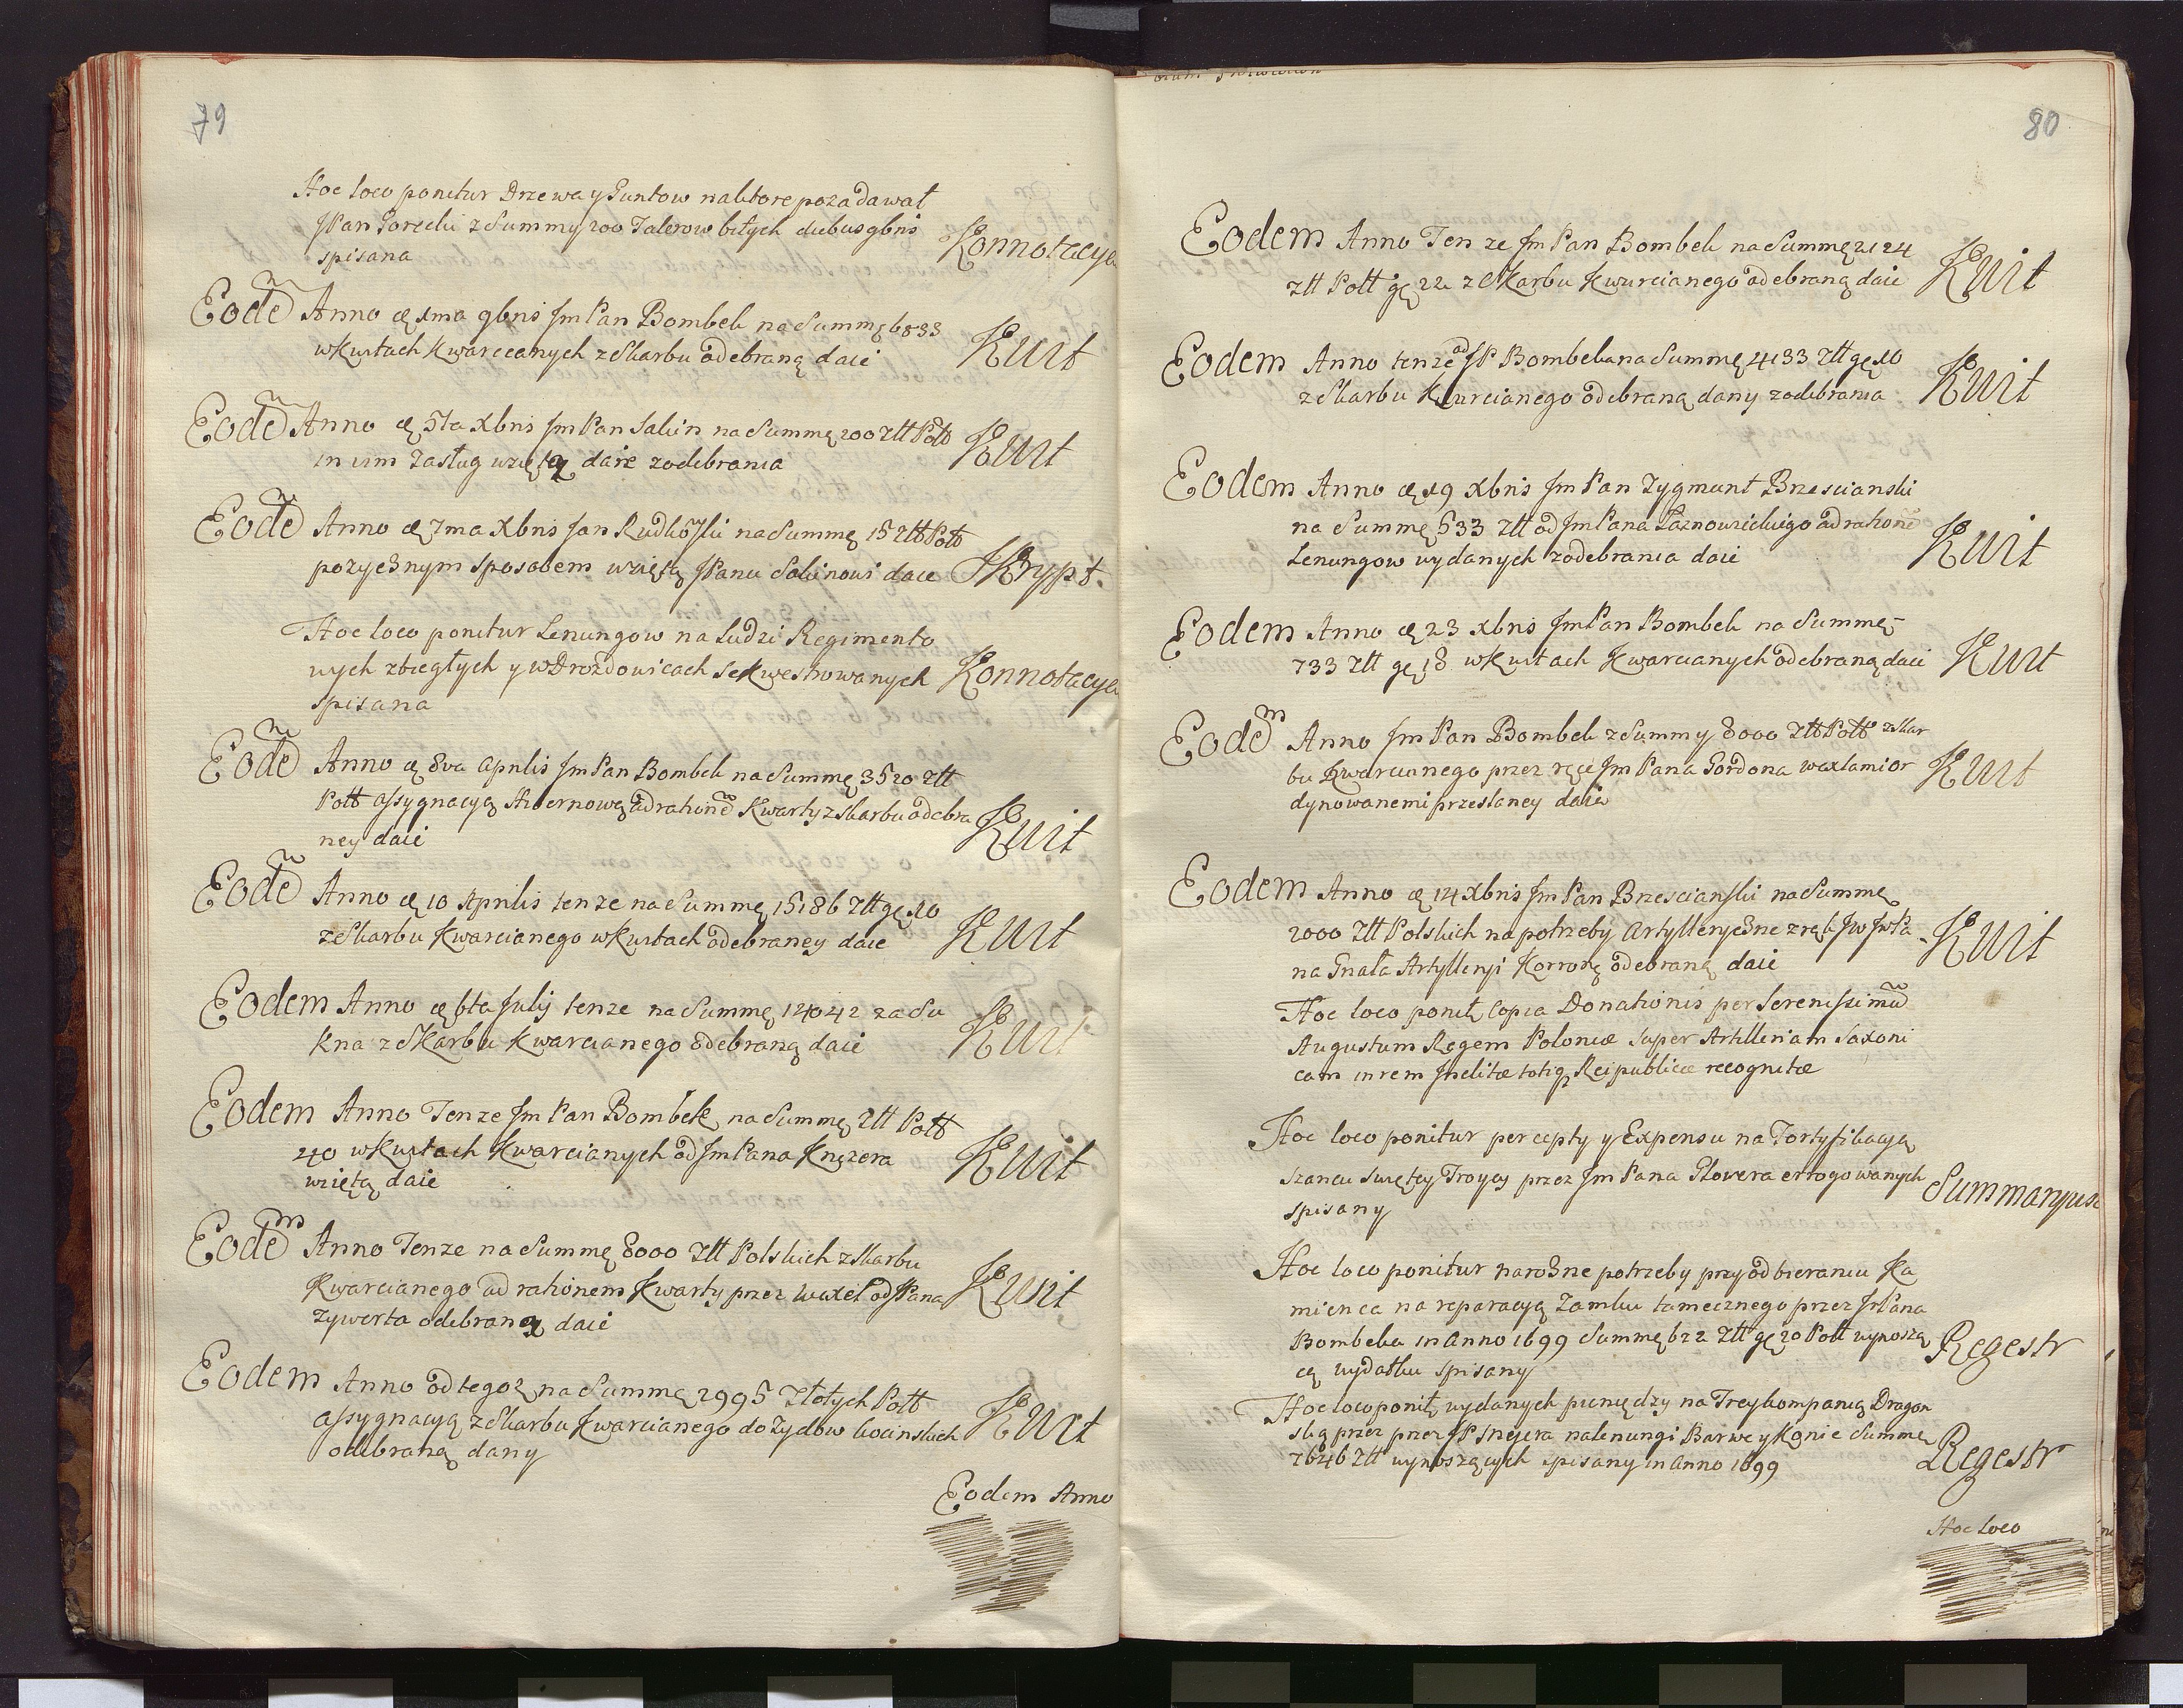 79
Hoc loco ponitur Drzewa y Guntow na ktore pozadawał
JPan Gorecki z Summy 200 Talerow bitych diebus 9bris
spisana Konnotacya
Eodem Anno d 1ma 9bris Jm Pan Bombek na Summę 6833
w Kwitach Kwarcianych z Skarbu odebraną daie Kwit
Eodem Anno d 5ta Xbris Jm Pan Sakin na Summę 200 Złł Poll
in vim Zasług wziętą daie z odebrania Kwit
Eodem Anno d 7ma Xbris Jan Rudkoski na Summę 15 Złł Poll
pozycznym sposobem wziętą JPanu Sakinowi daie Skrypt.
Hoc loco ponitur Lenungow na Ludzi Regimento
wych zbiegłych y w Drozdowicach sekwestrowanych Konnotacya
spisana
Eodem Anno d 8va Aprilis Jm Pan Bombek na Summę 3520 Złł
Poll assygnacyą Hibernową ad rationem Kwarty z Skarbu odebra
ney daie Kwit
Eodem Anno d 10 Aprilis tenze na Summę 15186 Złł gę 10
z Skarbu Kwarcianego w Kwitach odebraney daie Kwit
Eodem Anno d 6ta Julij tenze na Summę 14042 za Su
kna z Skarbu Kwarcianego odebraną daie Kwit
Eodem Anno Tenze Jm Pan Bombek na Summę Złł Poll
40 w Kwitach Kwarcianych od Jm Pana Knezera
wziętą daie Kwit
Eodem Anno Tenze na Summę 8000 Złł Polskich z Skarbu
Kwarcianego ad rationem Kwarty przez Wexel od JPana
Zywerta odebraną daie Kwit
Eodem Anno od tegoz na Summę 2995 Złotych Poll
assygnacyą z Skarbu Kwarcianego do Zydow kocinskich
odebraną dany Kwit
Eodem Anno
80
Eodem Anno Ten ze Jm Pan Bombek na Summę 2124
Złł Poll gę 22 z Skarbu Kwarcianego odebraną daie Kwit
Eodem Anno tenze od JP Bombeka na Summę 4133 Złł gę 10
z Skarbu Kwarcianego odebraną dany z odebrania Kwit
Eodem Anno d 19 Xbris Jm Pan Zygmunt Brzescianski
na Summę 533 Złł od Jm Pana Laznowickiego ad rationem
Lenungow wydanych z odebrania daie Kwit
Eodem Anno d 23 Xbris Jm Pan Bombek na Summę
733 Złł gę 18 w Kwitach Kwarcianych odebraną daie Kwit
Eodem Anno Jm Pan Bombek z Summy 8000 Złł Poll z Skar
bu Kwarcianego przez ręce Jm Pana Gordona wexlami or
dynowanemi przesłaney daie Kwit
Eodem Anno d 14 Xbris Jm Pan Brzescianski na Summę
2000 Złł Polskich na potrzeby Artylleryczne z rąk Jw Jm Pa
na Gnała Artylleryi Korronę odebraną daie Kwit
Hoc loco ponit Copia Donationis per Serenissimum
Augustum Regem Poloniæ super Artilleriam Saxoni
cam in rem Inclitæ totiq Reipublicæ recognitæ
Hoc loco ponitur percepty y Expensu na Fortyfikacyą
Szancu Swiętey Troycy przez Jm Pana Glovera errogowanych
spisany Summaryusz
Hoc loco ponitur na rożne potrzeby przy odbieraniu Ka
mienca na reparacyą Zamku tamecznego przez Jm Pana
Bombeka in Anno 1699 Summę 622 Złł gę 20 Poll wynoszą
cą wydatku spisany Regestr
Hoc loco ponit wydanych pieniędzy na Freykompanią Dragon
ską przez przez JP Snejera na lenungi Barwe y Konie Summę
7646 Złł wynoszących spisany in Anno 1699 Regestr
Hoc loco